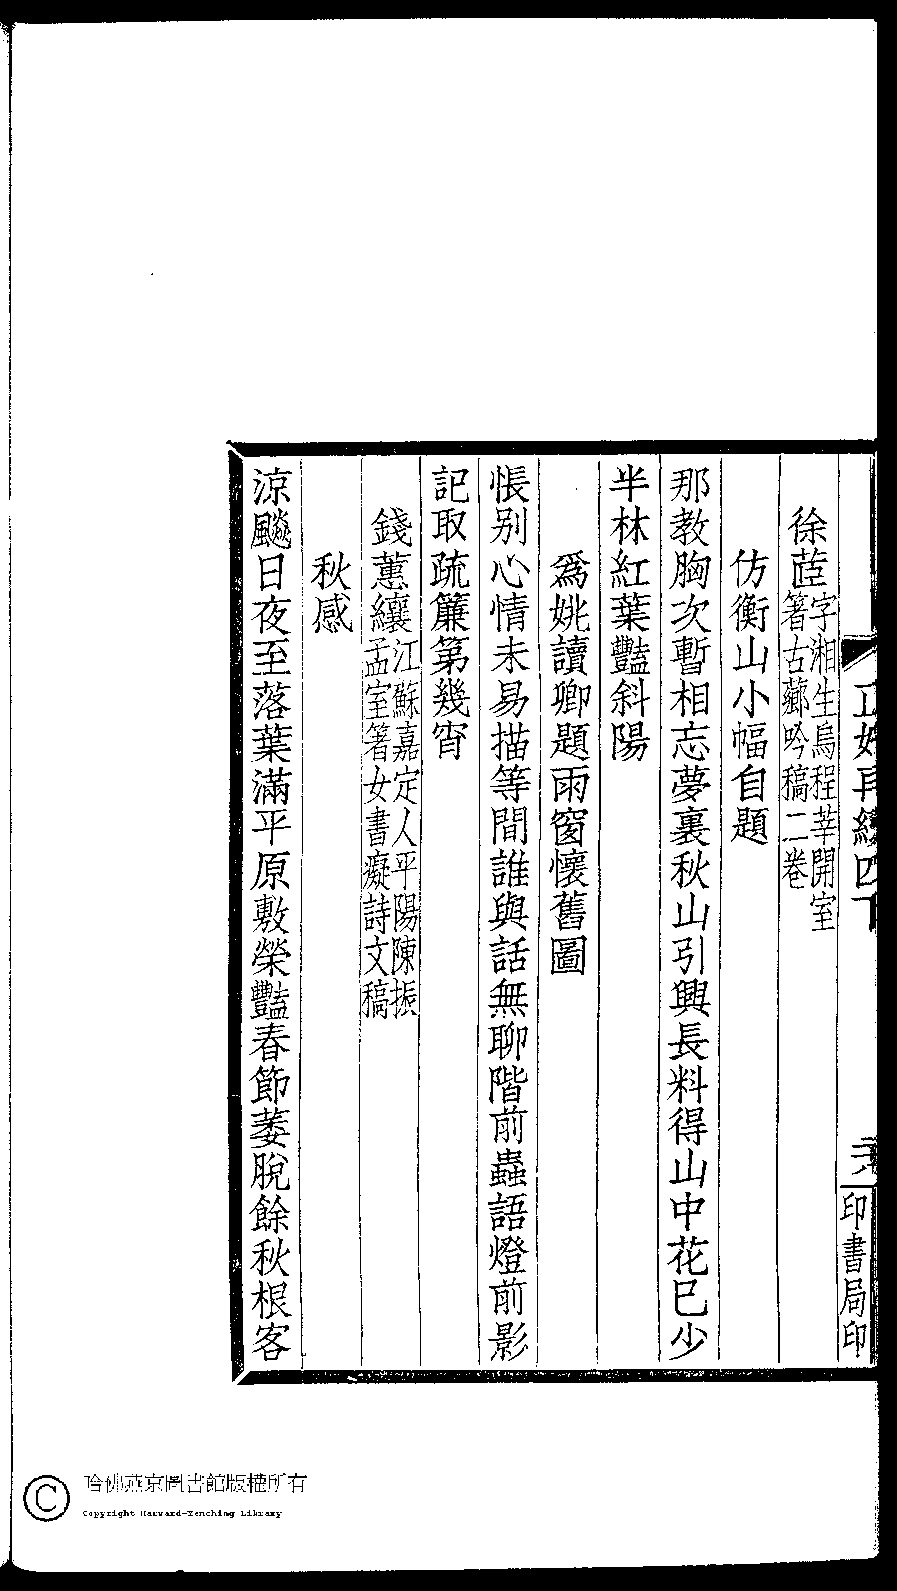 正始再續四下
印書局印
徐茝字湘生烏程莘開室
箸古薌吟稿二卷
仿衡山小幅自題
那教胸次暫相忘夢裏秋山引興長料得山中花已少
半林紅葉豔斜陽
爲姚讀卿題雨窗懷舊圖
悵別心情未易描等間誰與話無聊階前蟲語燈前影
記取疏簾第幾宵
錢蕙纕江蘇嘉定人平陽陳振
孟室箸女書癡詩文稿
秋感
涼飈日夜至落葉滿平原敷榮豔春節萎脫餘秋根客
哈佛燕京圖書館版權所有
Copyright Harvard-Yenching Library